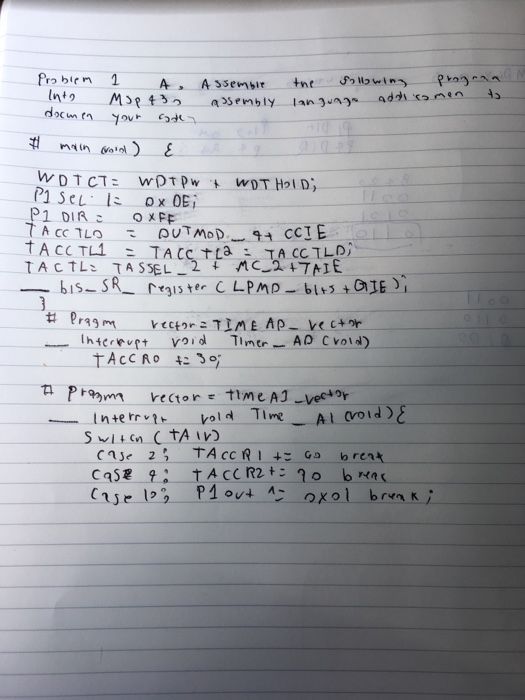 Problem 1 A. Assemble the following program
Into Msp 430 assembly language add comen to
documen your code
# main (void) {
WDTCT= WDTPW + WDT HOlD;
P1 Sel |= 0x0E;
P1 DIR = 0xFF
TACCTL0 = OUTMOD_4+ CCIE
TACCTL1 = TACC tL2 = TACCTLD;
TACTL= TASSEL_2 + MC_2+TAIE
__ bis_SR_ register (LPM0_bits + GIE);
}
# Pragm vector = TIMEA0_vector
__ Interrupt void Timer_A0 (void)
TACCR0 += 30;
# Pragma vector = timeA1_vector
__ Interrupt void Time_A1 (void) {
Switch (TAIV)
case 2; TACCR1 += 60 break
case 4: TACCR2 += 90 break
Case 10; P1out ^= 0x01 break;